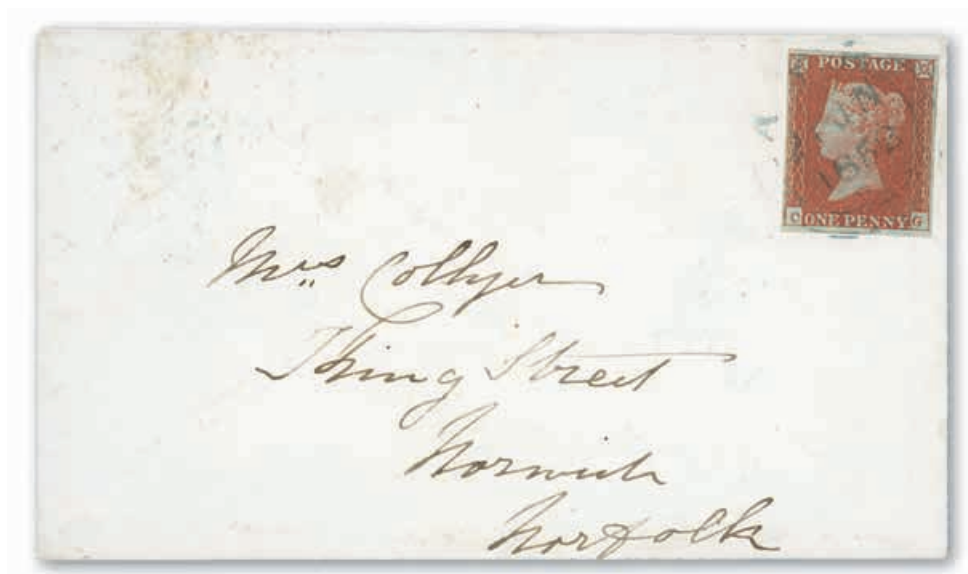 POSTAGE
ONE PENNY G
Mrs Collyer
King Street
Norwich
Norfolk